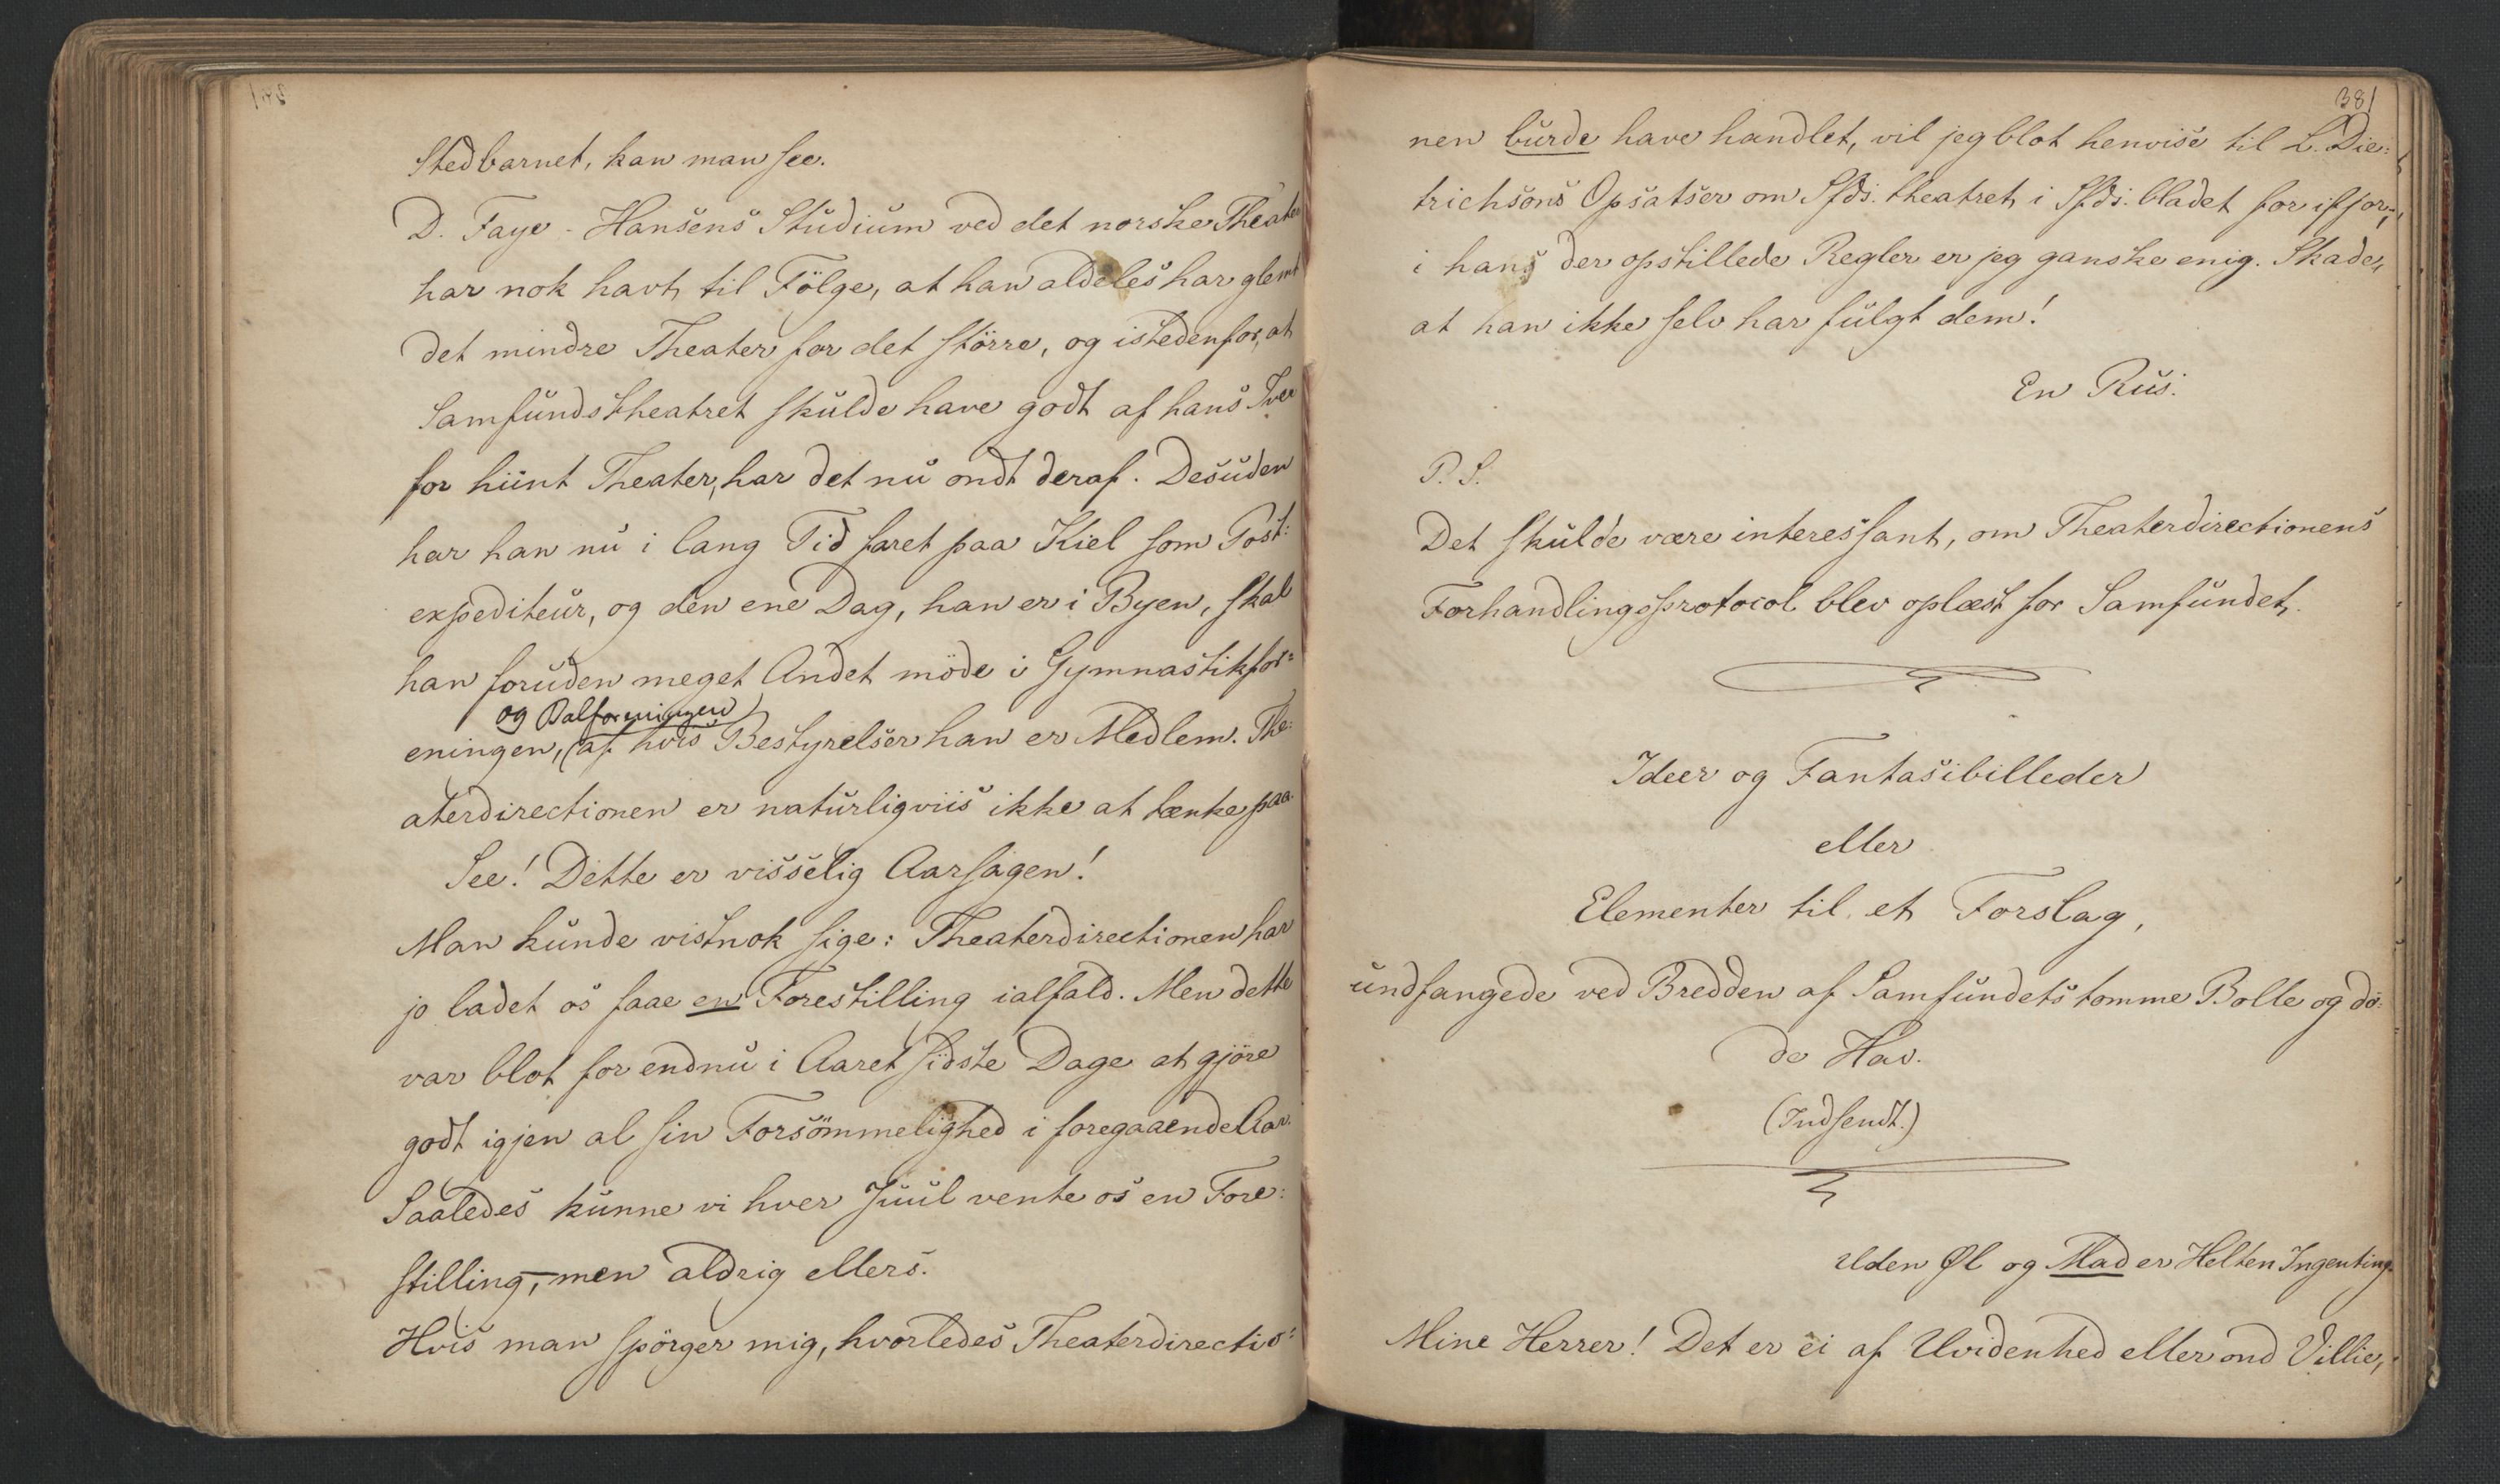 Stedbarnet, kan man see.
D. Faye-Hansens Studium ved det norske Theater
har nok havt til Fölge, at han aldeles har glemt
det mindre Theater for det större, og istedenfor, at
Samfundstheatret skulde have godt af hans Iver
for hiint Theater, har det nu ondt deraf. Desuden
har han nu i lang Tid faret paa Kiel som Post:
expediteur, og den ene Dag, han er i Byen, skal
han foruden meget Andet möde i Gymnastikfor=
og Balforeningen
eningen, (af hvis Bestyrelser han er Medlem. The:
aterdirectionen er naturligviis ikke at tænke paa.
See! Dette er visselig Aarsagen!
Man kunde vistnok sige: Theaterdirectionen har
jo ladet os faae en Forestilling ialfald. Men dette
var blot for endnu i Aaret sidste Dage at gjöre
godt igjen al sin Forsömmelighed i foregaaende Aar.
Saaledes kunne vi hver Juul vente os en Fore:
stilling, – men aldrig ellers.
Hvis man spörger mig, hvorledes Theaterdirectio=
381
nen burde have handlet, vil jeg blot henvise til L. Die:
trichsons Opsatser om Sfds. theatret i Sfds. bladet for ifjor;
i hans der opstillede Regler er jeg ganske enig. Skade,
at han ikke selv har fulgt dem!
En Rus.
P. S.
Det skulde være interessant, om Theaterdirectionens
Forhandlingsprotocol blev oplæst for Samfundet.
Ideer og Fantasibilleder
eller
Elementer til et Forslag,
undfangede ved Bredden af Samfundets tomme Bolle og dö:
de Hav.
(Indsendt.)
Uden Øl og Mad er Helten Ingenting.
Mine Herrer! Det er ei af Uvidenhed eller ond Villie,